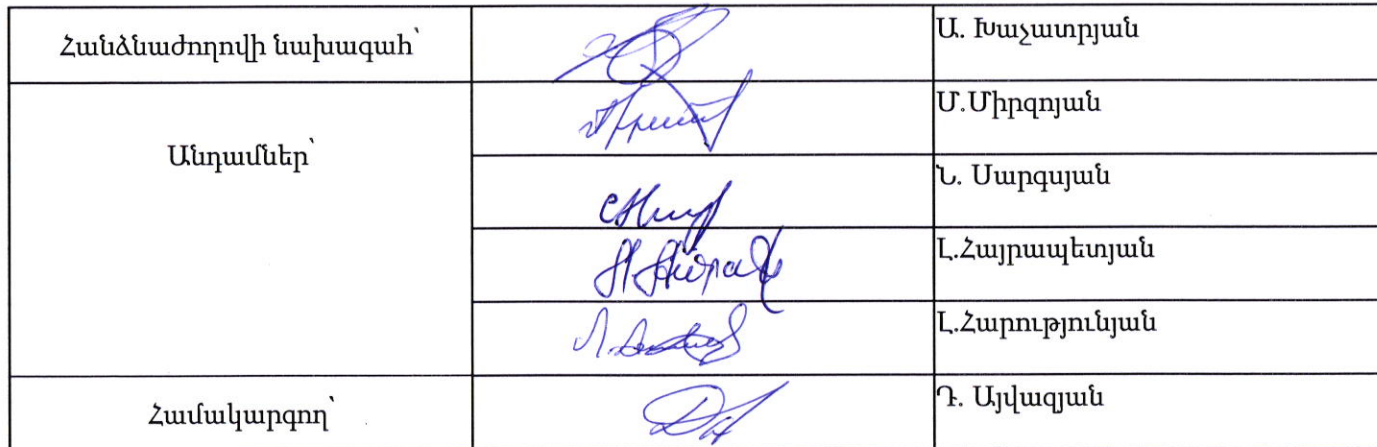 Հանձնաժողովի նախագահ՝
Ա. Խաչատրյան
Անդամներ՝
Մ.Միրզոյան
Ն. Սարգսյան
Լ.Հայրապետյան
Լ.Հարությունյան
Համակարգող՝
Դ. Այվազյան